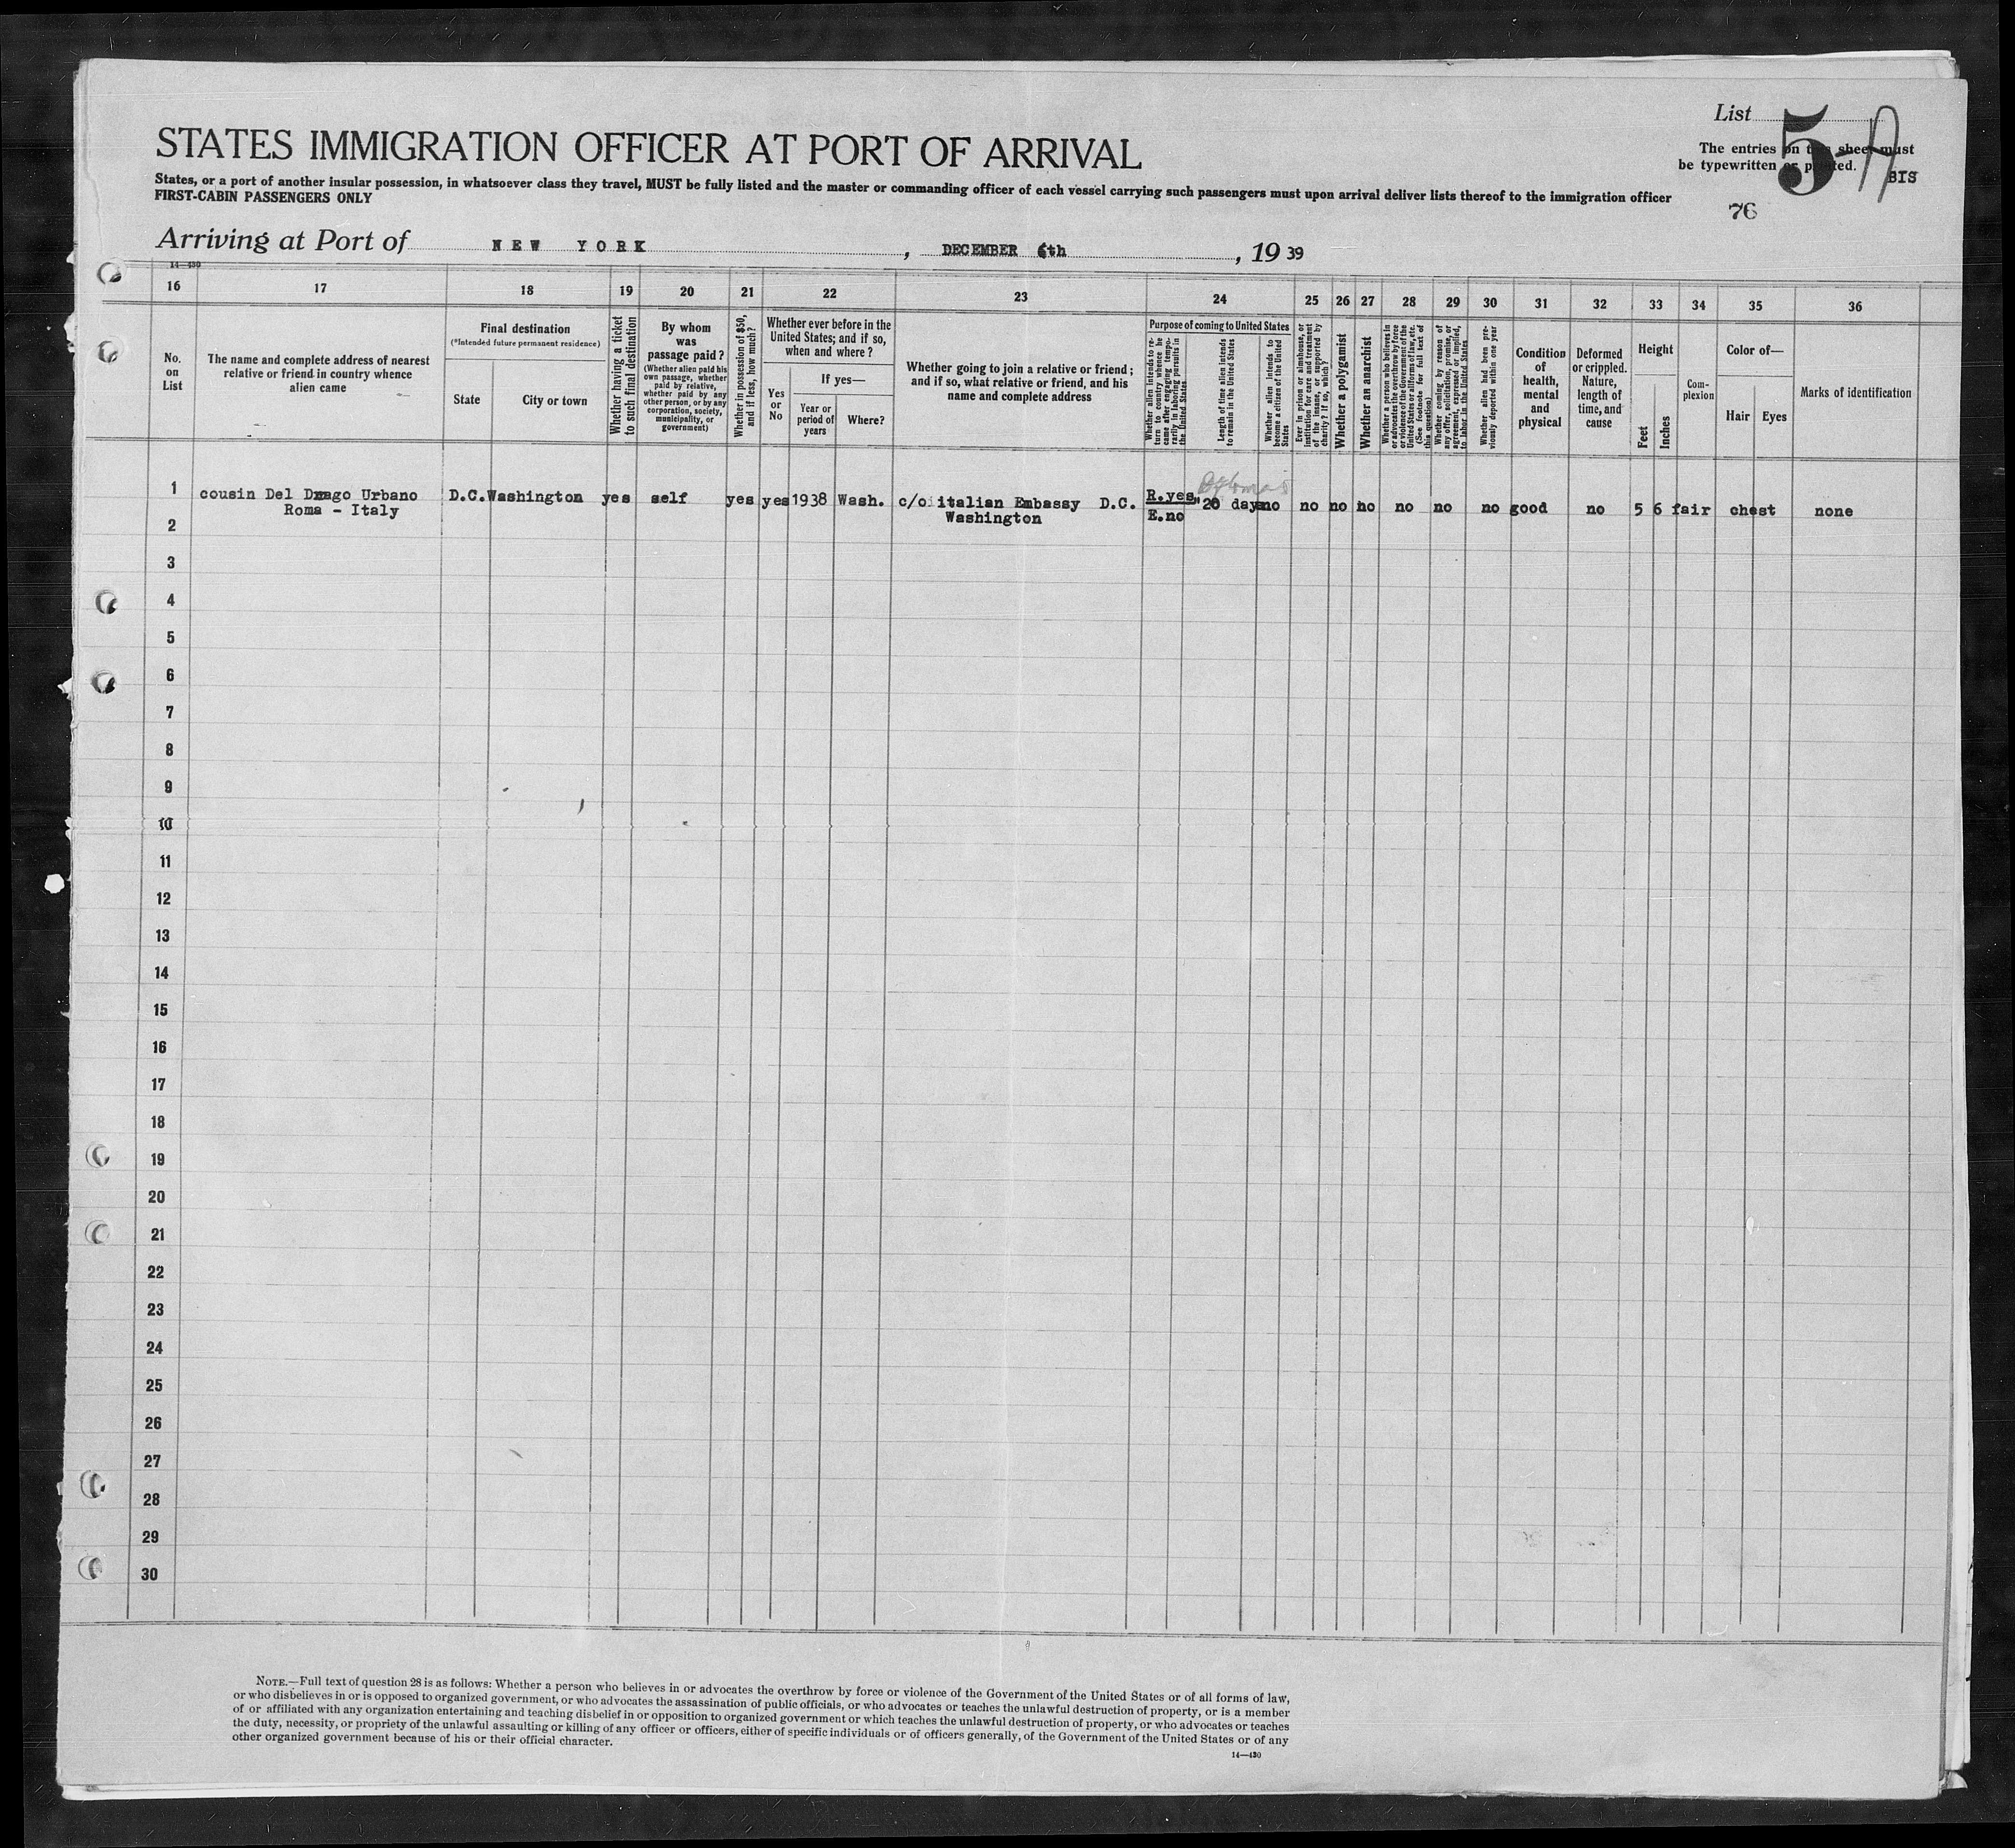 List 5-A
STATES IMMIGRATION OFFICER AT PORT OF ARRIVAL
The entries on this sheet must
be typewritten or printed.
BIS
States, or a port of another insular possession, in whatsoever class they travel, MUST be fully listed and the master or commanding officer of each vessel carrying such passengers must upon arrival deliver lists thereof to the immigration officer
FIRST-CABIN PASSENGERS ONLY
76
Arriving at Port of NEW YORK, DECEMBER 6th, 19 39
14—430
16 17 18 19 20 21 22 23 24 25 26 27 28 29 30 31 32 33 34 35 36
No. on List
The name and complete address of nearest relative or friend in country whence alien came
Final destination
(*Intended future permanent residence)
State
City or town
Whether having a ticket to such final destination
By whom was passage paid?
(Whether alien paid his own passage, whether paid by relative, whether paid by any other person, or by any corporation, society, municipality, or government)
Whether in possession of $50, and if less, how much?
Whether ever before in the United States; and if so, when and where?
Yes or No
If yes—
Year or period of years
Where?
Whether going to join a relative or friend; and if so, what relative or friend, and his name and complete address
Purpose of coming to United States
Whether alien intends to return to country whence he came after engaging temporarily in laboring pursuits in the United States
Length of time alien intends to remain in the United States
Whether alien intends to become a citizen of the United States
Ever in prison or almshouse, or institution for care and treatment of the insane, or supported by charity? If so, which?
Whether a polygamist
Whether an anarchist
Whether a person who believes in or advocates the overthrow by force or violence of the Government of the United States or all forms of law, etc. (See footnote for full text of this question)
Whether coming by reason of any offer, solicitation, promise, or agreement, expressed or implied, to labor in the United States
Whether alien had been previously deported within one year
Condition of health, mental and physical
Deformed or crippled. Nature, length of time, and cause
Height
Feet
Inches
Complexion
Color of—
Hair
Eyes
Marks of identification
1 cousin Del Drago Urbano D.C. Washington yes self yes yes 1938 Wash. c/o italian Embassy D.C. R.yes 20 days no no no no no no no good no 5 6 fair chest none
Roma - Italy Washington E.no
2
3
4
5
6
7
8
9
10
11
12
13
14
15
16
17
18
19
20
21
22
23
24
25
26
27
28
29
30
NOTE.—Full text of question 28 is as follows: Whether a person who believes in or advocates the overthrow by force or violence of the Government of the United States or of all forms of law,
or who disbelieves in or is opposed to organized government, or who advocates the assassination of public officials, or who advocates or teaches the unlawful destruction of property, or is a member
of or affiliated with any organization entertaining and teaching disbelief in or opposition to organized government or which teaches the unlawful destruction of property, or who advocates or teaches
the duty, necessity, or propriety of the unlawful assaulting or killing of any officer or officers, either of specific individuals or of officers generally, of the Government of the United States or of any
other organized government because of his or their official character.
14—430